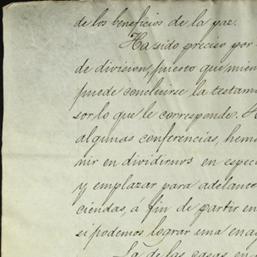 de los beneficios de la paz.
Ha sido preciso por
de division, puesto que mien
puede concluirse la testam
sor lo que le corresponde.
algunas conferencias, hem
nir en dividirnos en espec
y emplazar para adelante
ciendas, á fin de partir en
si podemos lograr una enag
La de las casas en